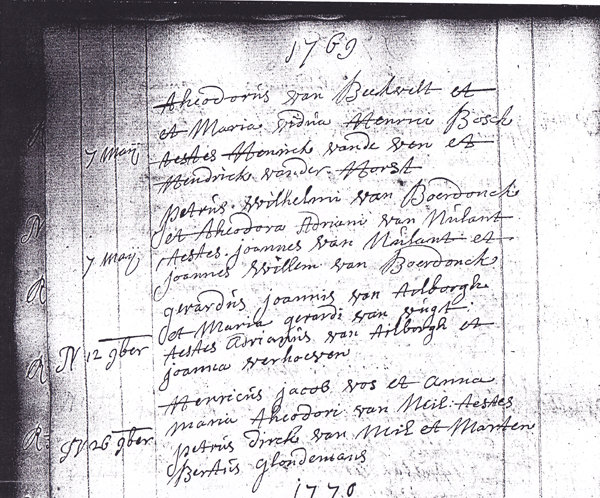 1769
Theodorus van Beekvelt et
et Maria vidua Henrici Bosch
7 Maij testes Henrick vande ven et
Hendrick vander Horst
petrus Wilhelmi van Boerdonck
N et Theodora Adriani van Nulant
7 Maij testes joannes van Nulant et
joannes Willem van Boerdonck
R
gerardus joannis van Tilborgh
et Maria gerardi van vugt
R N 12 9ber testes Adrianus van Tilborgh et
joanna verhoeven
Henricus jacob vos et anna
maria Theodori van Mil testes
R N 26 9ber petrus dirck van Mil et Marten
Bertus glondemans
1770